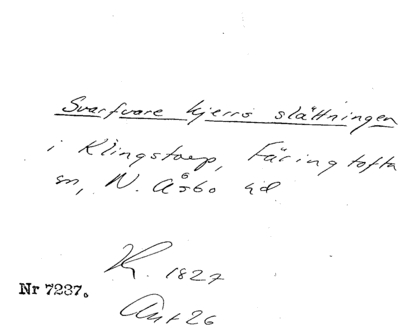 Svarfvare kjerrs slåttningen
i Klingstorp, Färingtofta
sn, N. Åsbo hd
K. 1827
Nr 7237.
Ant 26